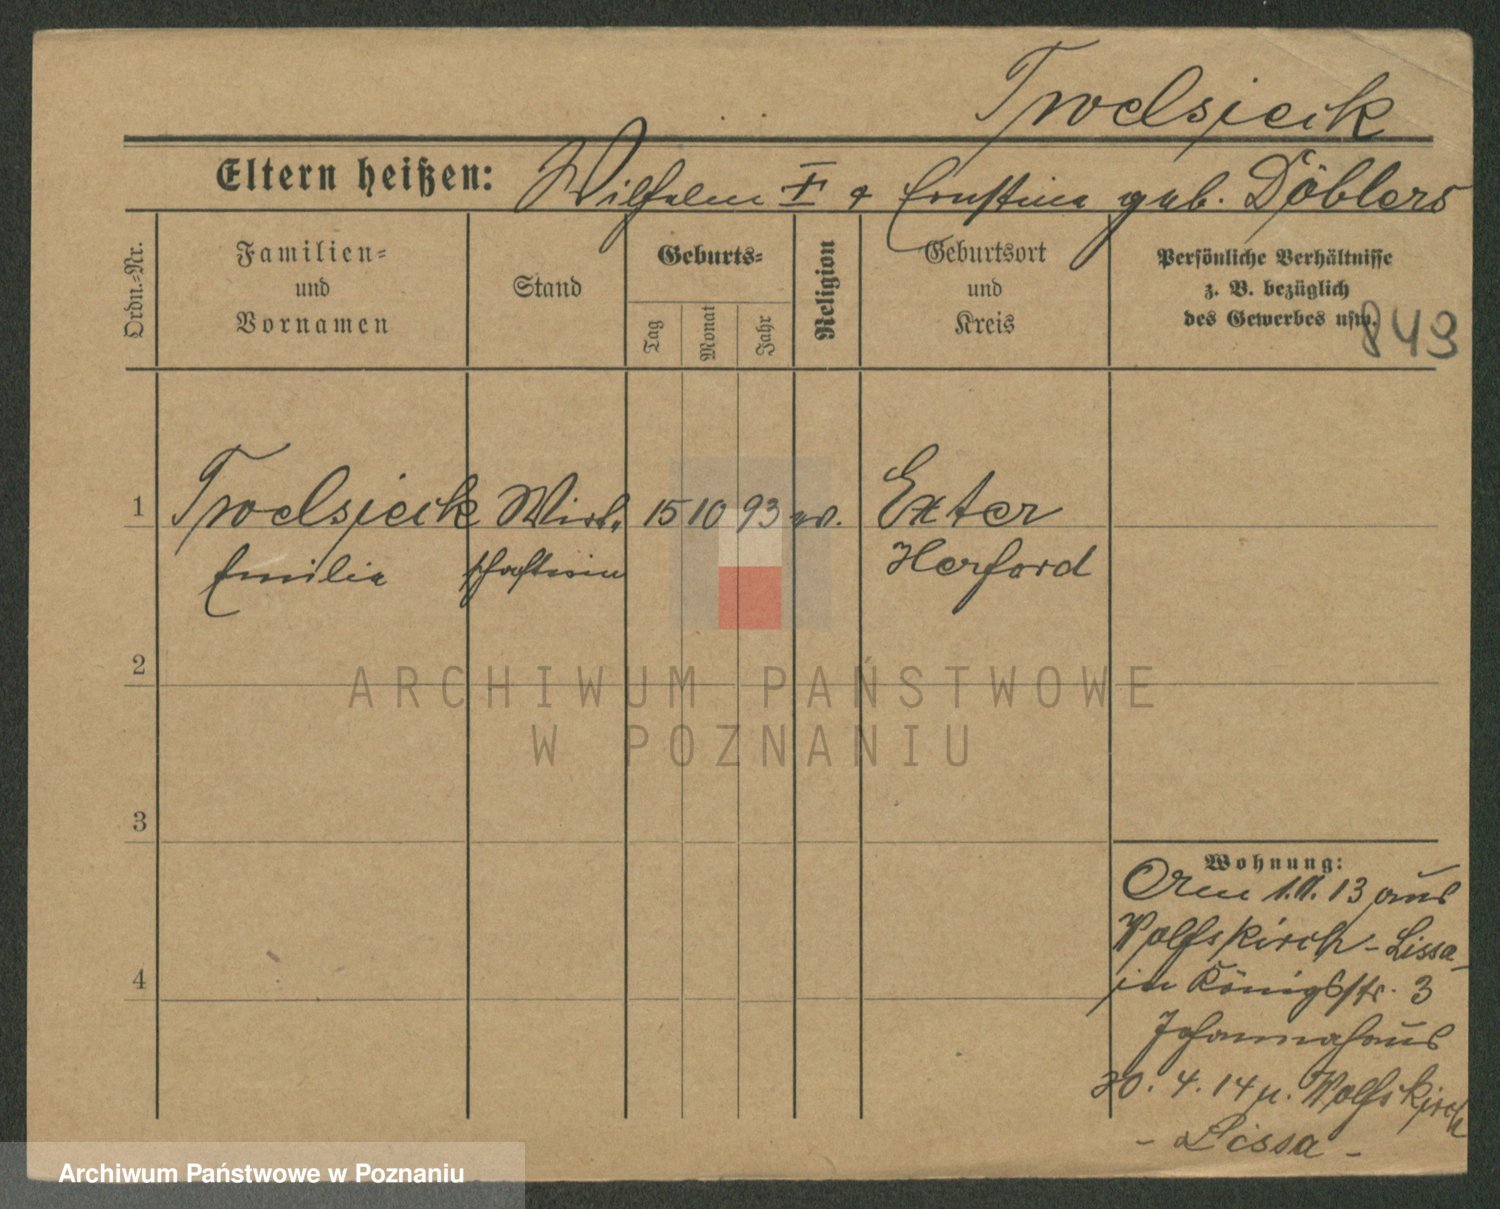 Trodsieik
Eltern heißen: Wilhelm I & Ernstine geb. Döblers
Ordn.-Nr.
Familien-
und
Vornamen
Stand
Geburts-
Tag
Monat
Jahr
Religion
Geburtsort
und
Kreis
Persönliche Verhältnisse
z. B. bezüglich
des Gewerbes usw.
843
1 Trodsieik Wirt- 15 10 93 ev. Exter
Emilie schafterin Herford
2
3
4
Wohnung:
1.11.13 aus
Wolfskirch - Lissa -
in Königsstr. 3
Johannahaus
30. 4. 14 n. Wolfskirch
- Lissa -
ARCHIWUM PAŃSTWOWE
W POZNANIU
Archiwum Państwowe w Poznaniu